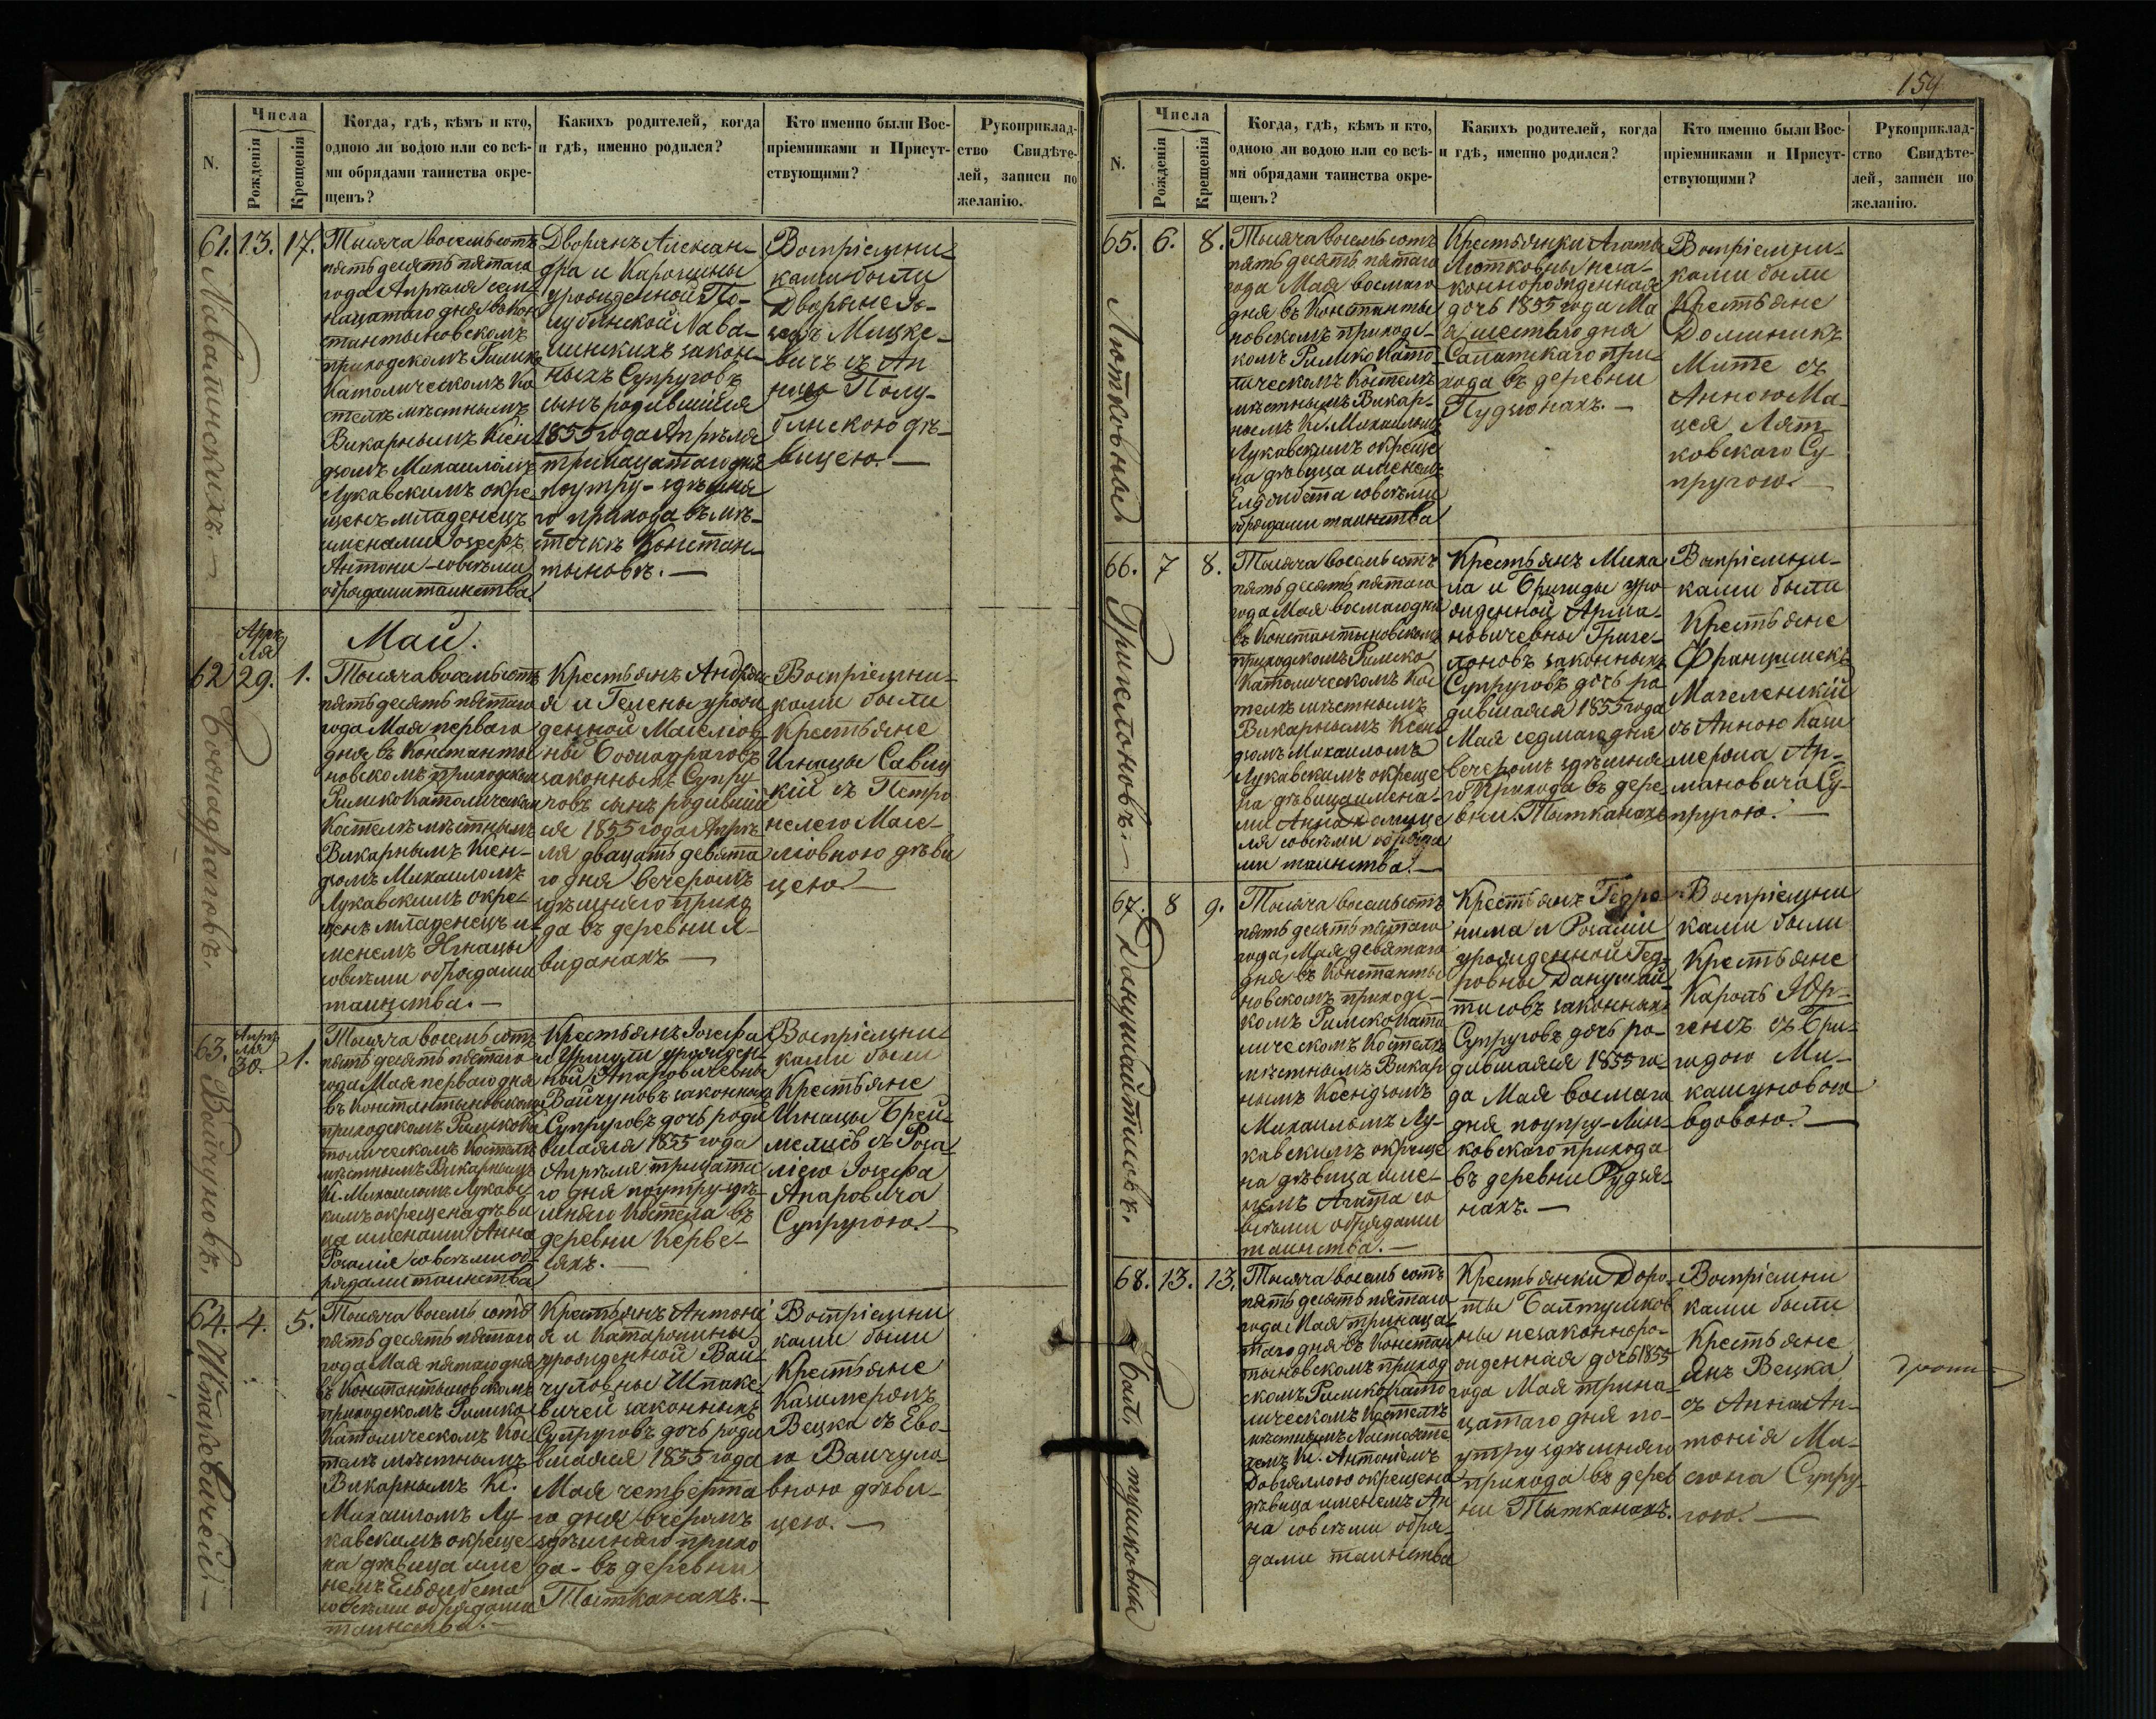 Числа
N.
Рожденія
Крещенія
Когда, гдѣ, кѣмъ и кто,
одною ли водою или со всѣ-
ми обрядами таинства окре-
щенъ?
Какихъ родителей, когда
и гдѣ, именно родился?
Кто именно были Вос-
пріемниками и Присут-
ствующими?
Рукоприклад-
ство Свидѣте-
лей, записи по
желанію.
61.
13.
17.
Тысяча восемь сотъ
пять десятъ пятаго
года Апрѣля сем-
нацатаго дня въ Кон
стантыновскомъ
приходскомъ Римско
Католическомъ Ко
стелѣ мѣстнымъ
Викарнымъ Ксен
дзомъ Михаиломъ
Лукавскимъ окре-
щенъ младенецъ
именами Іозефъ
Антони совсѣми
обрядами таинства.
Дворянъ Алексан-
дра и Каролины
урожденной По-
лубинской
закон-
ныхъ Супруговъ
сынъ родившійся
1855 года Апрѣля
тринацатаго дня
поутру - здѣшня
го прихода въ мѣ-
стечкѣ Констан-
тыновѣ. —
Воспріемни-
ками были
Дворяне Іо-
зефъ Мицке-
вичъ съ Ан
ною Полу-
бинскою дѣ-
вицею. —
Май.
62
Апрѣ
ля
29.
1.
Тысяча восемь сотъ
пять десятъ пятаго
года Мая перваго
дня въ Константы
новскомъ приходскомъ
Римско Католическом
Костелѣ мѣстнымъ
Викарнымъ Ксен-
дзомъ Михаиломъ
Лукавскимъ окре-
щенъ младенецъ и-
менемъ Игнацы
совсѣми обрядами
таинства. —
Крестьянъ Андре
я и Гелены урож
денной
законныхъ Супру-
говъ сынъ родивші
ся 1855 года Апрѣ-
ля двацать девята
го дня вечеромъ
здѣшняго прихо
да въ деревни А-
виданахъ —
Воспріемни-
ками были
Крестьяне
Игнацы Савиц
кій съ Петро
нелею Масе-
люсвною дѣви
цею —
63.
Апрѣ
ля
30.
1.
Тысяча восемь сотъ
пять десятъ пятаго
года Мая перваго дня
въ Константыновскомъ
приходскомъ Римско Ка
толическомъ Костелѣ
мѣстнымъ Викарнымъ
Кс. Михаиломъ Лукавс
кимъ окрещена дѣви
ца именами Анна
Розалія совсѣми об-
рядами таинства
Крестьянъ Іозефа
и Уршули урожден-
ной Апаровичевны
Вайчуновъ законныхъ
Супруговъ дочь роди
вшаяся 1855 года
Апрѣля трицата
го дня поутру здѣ-
шняго Костела въ
деревни Керве-
ляхъ. —
Воспріемни
ками были
Крестьяне
Игнацы Брей-
мелисъ съ Роза
ліею Іозефа
Апаровича
Супругою. —
64.
4.
5.
Тысяча восемь сотъ
пять десятъ пятаго
года Мая пятаго дня
въ Константыновскомъ
приходскомъ Римско
Католическомъ Кос
телѣ мѣстнымъ
Викарнымъ Кс.
Михаиломъ Лу-
кавскимъ окреще
на дѣвица име
немъ Ельжбета
совсѣми обрядами
таинства. —
Крестьянъ Антоні
я и Катаронины
урожденной Вай-
чуловны Шпаке-
вичей законныхъ
Супруговъ дочь роди
вшаяся 1855 года
Мая четверта
го дня вечеромъ
здѣшняго прихо
да - въ деревни
Пытканахъ. —
Воспріемни
ками были
Крестьяне
Казимеромъ
Вецка съ Ево-
ю Вайчуло-
вною дѣви-
цею. —
Вайчуновъ.
Шпакевичей —
154
Числа
N.
Рожденія
Крещенія
Когда, гдѣ, кѣмъ и кто,
одною ли водою или со всѣ-
ми обрядами таинства окре-
щенъ?
Какихъ родителей, когда
и гдѣ, именно родился?
Кто именно были Вос-
пріемниками и Присут-
ствующими?
Рукоприклад-
ство Свидѣте-
лей, записи по
желанію.
65.
6.
8.
Лютковны
Тысяча восемь сотъ
пять десятъ пятаго
года Мая восмаго
дня въ Константы
новскомъ приходс-
комъ Римско Като
лическомъ Костелѣ
мѣстнымъ Викар-
нымъ Кс. Михаиломъ
Лукавскимъ окреще
на дѣвица именемъ
Елжбета совсѣми
обрядами таинства
Крестьянки Агаты
Лютковны неза-
коннорожденная
дочь 1855 года Ма
я шестаго дня
при-
хода въ деревни
Пудзюнахъ. —
Воспріемни-
ками были
Крестьяне
Доминикъ
Мите съ
Анною Ма-
цея Лют-
ковскаго Су-
пругою. —
66.
7
8.
Григелоновъ. —
Тысяча восемь сотъ
пять десятъ пятаго
года Мая восмаго дня
въ Константыновскомъ
приходскомъ Римско
Католическомъ Кос
телѣ мѣстнымъ
Викарнымъ Ксен
дзомъ Михаиломъ
Лукавскимъ окреще
на дѣвица имена-
ми Анна
ля совсѣми обряда
ми таинства. —
Крестьянъ Миха
ла и Бригиды уро
жденной Арма-
новичевны Григе-
лоновъ законныхъ
Супруговъ дочь ро-
дившаяся 1855 года
Мая седмаго дня
вечеромъ здѣшня
го Прихода въ дере-
вни Пытканахъ
Воспріемни-
ками были
Крестьяне
Францишекъ
Магеленскій
съ Анною Кази
мерома Ар-
мановича Су-
пругою. —
67.
8
9.
Данушайтисовъ.
Тысяча восемь сотъ
пять десятъ пятаго
года Мая девятаго
дня въ Константы
новскомъ приходс-
комъ Римско Като
лическомъ Костелѣ
мѣстнымъ Викар
нымъ Ксендзомъ
Михаиломъ Лу-
кавскимъ окреще
на дѣвица име-
немъ Агата со
всѣми обрядами
таинства. —
Крестьянъ Гедро
нима и Розаліи
урожденной Гед-
ровны Данушай-
тисовъ законныхъ
Супруговъ дочь ро-
дившаяся 1855 го-
да Мая восмаго
дня поутру - Лин-
ковскаго прихода
въ деревни Рудзя-
нахъ. —
Воспріемни
ками были
Крестьяне
Кароль Юр-
генсъ съ Бри-
гидою Ми-
кашуновою
вдовою. —
68.
13.
13.
Балтушковны
Тысяча восемь сотъ
пять десятъ пятаго
года Мая тринаца-
таго дня въ Констан
тыновскомъ приход
скомъ Римско Като
лическомъ Костелѣ
мѣстнымъ Настояте
лемъ Кс. Антоніемъ
Довгялломъ окрещена
дѣвица именемъ Ан
на совсѣми обря-
дами таинства
Крестьянки Доро-
ты Балтушков
ны незаконноро-
жденная дочь 1855
года Мая трина-
цатаго дня по-
утру здѣшняго
прихода въ дерев
ни Пытканахъ.
Воспріемни
ками были
Крестьяне
Янъ Вецка
съ Анною Ан-
тонія Ми-
сюна Супру-
гою. —